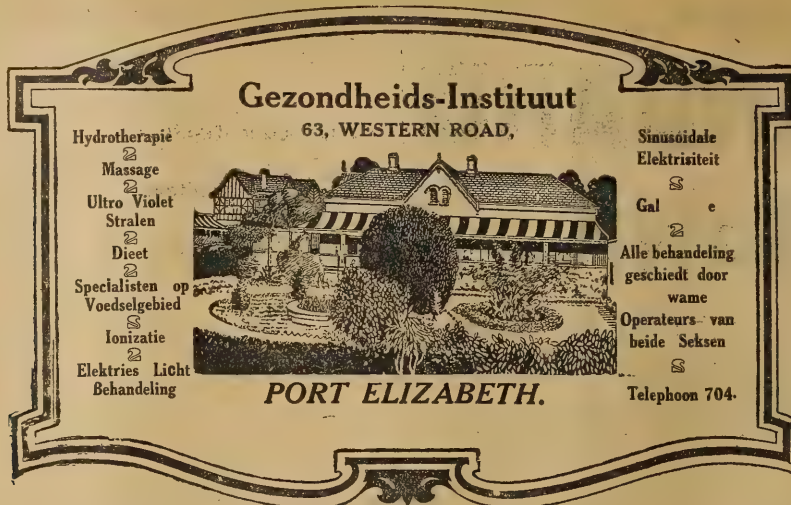 Gezondheids-Instituut
63, WESTERN ROAD,
Hydrotherapie
Massage
Ultro Violet
Stralen
Dieet
Specialisten op
Voedselgebied
Ionizatie
Elektries Licht
Behandeling
Sinusoidale
Elektrisiteit
Alle behandeling
geschiedt door
Operateurs van
beide Seksen
Telephoon 704.
PORT ELIZABETH.